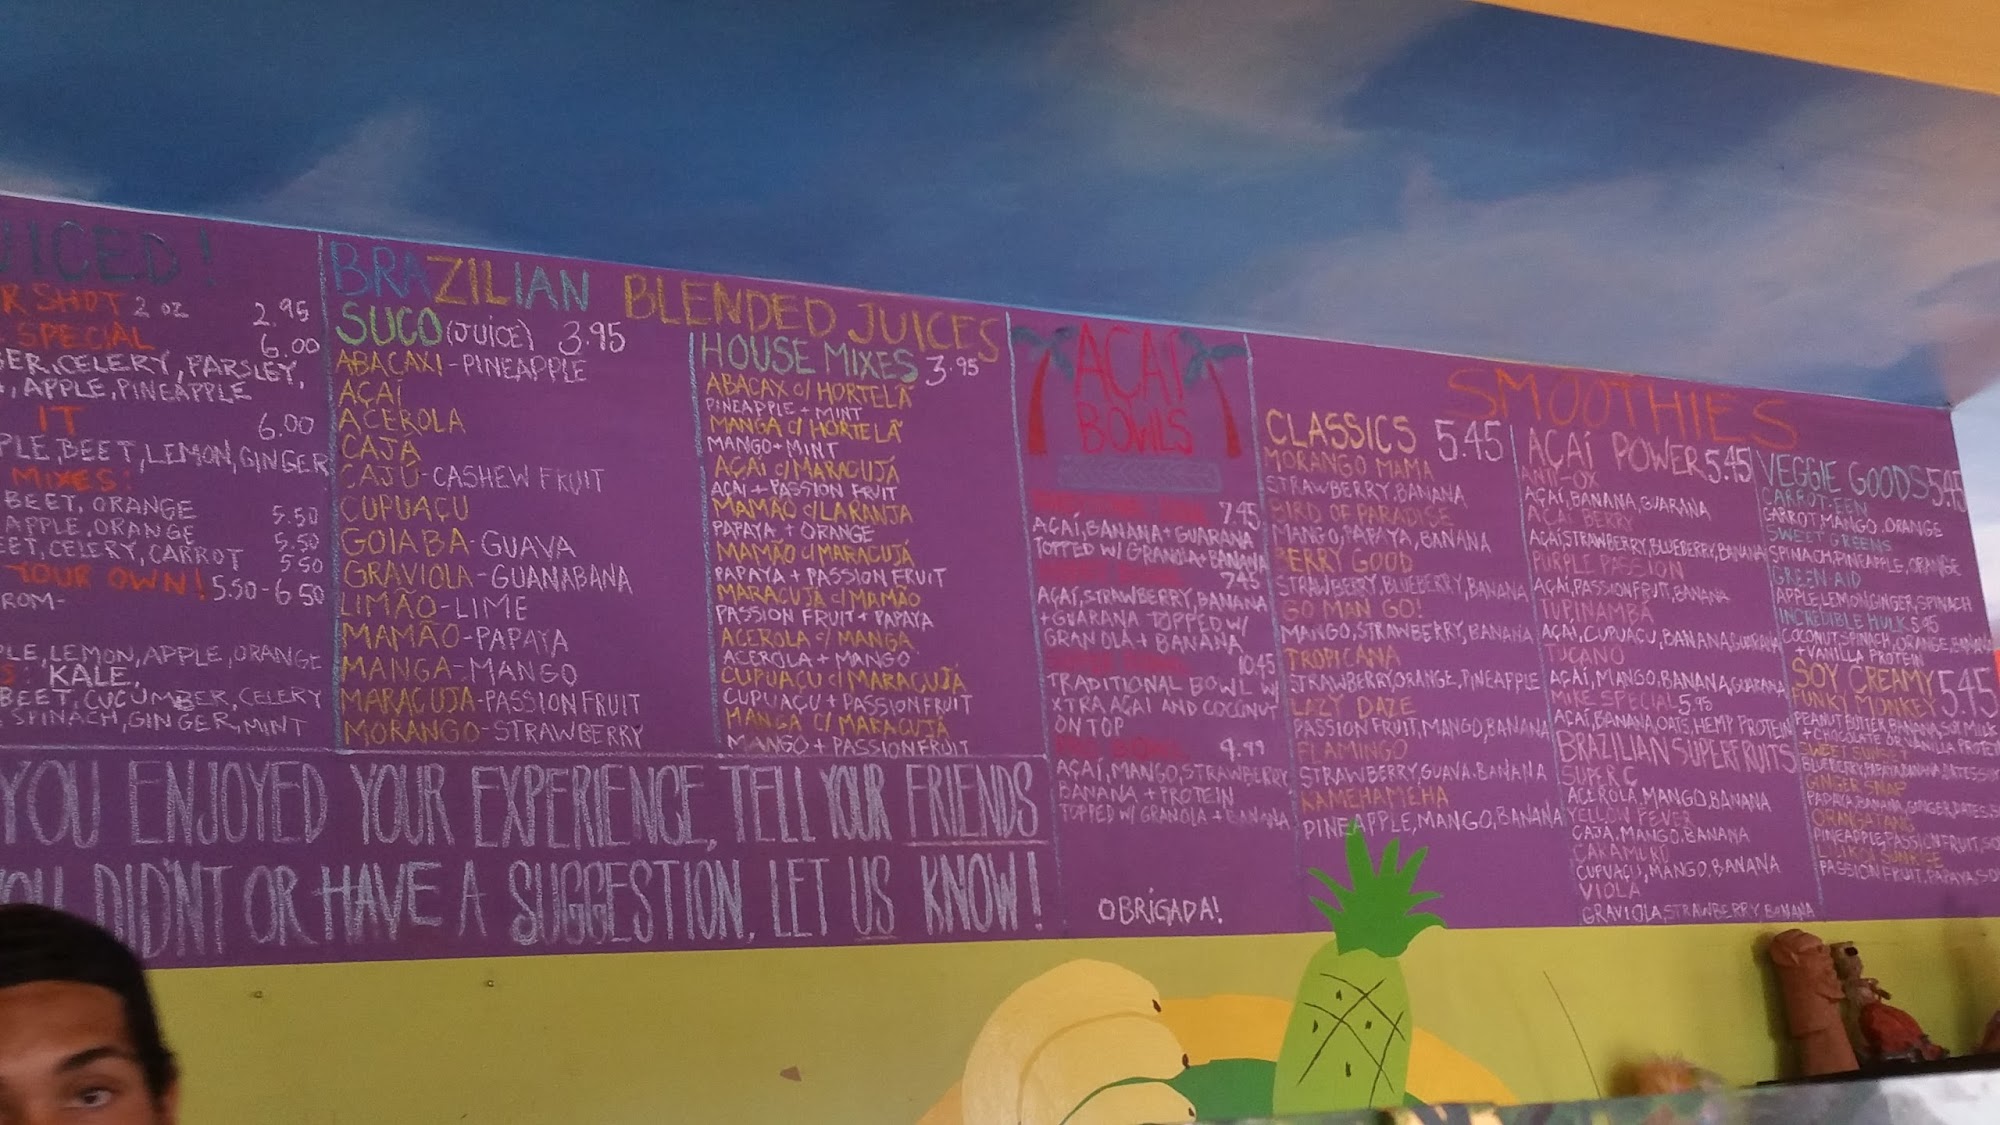 UICED!
R SHOT 2 OZ 2.95
SPECIAL 6.00
CELERY, PARSLEY,
, APPLE, PINEAPPLE
IT 6.00
PLE, BEET, LEMON, GINGER
MIXES:
BEET, ORANGE 5.50
APPLE, ORANGE 5.50
EET, CELERY, CARROT 5.50
YOUR OWN! 5.50-6.50
ROM-
PLE, LEMON, APPLE, ORANGE
S: KALE,
BEET, CUCUMBER, CELERY
, SPINACH, GINGER, MINT
BRAZILIAN BLENDED JUICES
SUCO (JUICE) 3.95
ABACAXI-PINEAPPLE
AÇAÍ
ACEROLA
CAJÁ
CAJÚ-CASHEW FRUIT
CUPUAÇU
GOIABA-GUAVA
GRAVIOLA-GUANABANA
LIMÃO-LIME
MAMÃO-PAPAYA
MANGA-MANGO
MARACUJA-PASSION FRUIT
MORANGO-STRAWBERRY
HOUSE MIXES 3.95
ABACAX C/ HORTELÃ
PINEAPPLE + MINT
MANGA C/ HORTELÃ
MANGO + MINT
AÇAI C/ MARACUJÁ
ACAI + PASSION FRUIT
MAMÃO C/ LARANJA
PAPAYA + ORANGE
MAMÃO C/ MARACUJÁ
PAPAYA + PASSION FRUIT
MARACUJA C/ MAMÃO
PASSION FRUIT + PAPAYA
ACEROLA C/ MANGA
ACEROLA + MANGO
CUPUAÇU C/ MARACUJÁ
CUPUAÇU + PASSION FRUIT
MANGA C/ MARACUJÁ
MANGO + PASSION FRUIT
YOU ENJOYED YOUR EXPERIENCE, TELL YOUR FRIENDS
YOU DIDN'T OR HAVE A SUGGESTION, LET US KNOW!
AÇAI
BOWLS
7.45
AÇAÍ, BANANA + GUARANA
TOPPED W/ GRANOLA + BANANA
7.45
AÇAÍ, STRAWBERRY, BANANA
+ GUARANA TOPPED W/
GRANOLA + BANANA
10.45
TRADITIONAL BOWL W/
XTRA AÇAI AND COCONUT
ON TOP
9.99
AÇAÍ, MANGO, STRAWBERRY
BANANA + PROTEIN
TOPPED W/ GRANOLA + BANANA
OBRIGADA!
SMOOTHIES
CLASSICS 5.45
MORANGO MAMA
STRAWBERRY, BANANA
BIRD OF PARADISE
MANGO, PAPAYA, BANANA
BERRY GOOD
STRAWBERRY, BLUEBERRY, BANANA
GO MAN GO!
MANGO, STRAWBERRY, BANANA
TROPICANA
STRAWBERRY, ORANGE, PINEAPPLE
LAZY DAZE
PASSION FRUIT, MANGO, BANANA
FLAMINGO
STRAWBERRY, GUAVA, BANANA
KAMEHAMEHA
PINEAPPLE, MANGO, BANANA
AÇAÍ POWER 5.45
ANTI-OX
AÇAÍ, BANANA, GUARANA
AÇAI BERRY
AÇAÍ, STRAWBERRY, BLUEBERRY, BANANA
PURPLE PASSION
AÇAÍ, PASSION FRUIT, BANANA
TUPINAMBÁ
AÇAÍ, CUPUACU, BANANA, GUARANA
TUCANO
AÇAÍ, MANGO, BANANA, GUARANA
MIKE SPECIAL 5.95
AÇAÍ, BANANA, OATS, HEMP PROTEIN
BRAZILIAN SUPERFRUITS
SUPER C
ACEROLA, MANGO, BANANA
YELLOW FEVER
CAJA, MANGO, BANANA
CAKAMURU
CUPUAÇU, MANGO, BANANA
VIOLA
GRAVIOLA, STRAWBERRY, BANANA
VEGGIE GOODS 5.45
CARROT-EEN
CARROT, MANGO, ORANGE
SWEET GREENS
SPINACH, PINEAPPLE, ORANGE
GREEN-AID
APPLE, LEMON, GINGER, SPINACH
INCREDIBLE HULK 5.95
COCONUT, SPINACH, ORANGE, BANANA
+ VANILLA PROTEIN
SOY CREAMY 5.45
FUNKY MONKEY
PEANUT BUTTER, BANANA, SOY MILK
+ CHOCOLATE OR VANILLA PROTEI
SWEET SUNSET
BLUEBERRY, PAPAYA, BANANA, DATES, SOY
GINGER SNAP
PAPAYA, BANANA, GINGER, DATES, S
ORANGATANG
PINEAPPLE, PASSION FRUIT, SO
SUNRISE
PASSION FRUIT, PAPAYA, SO